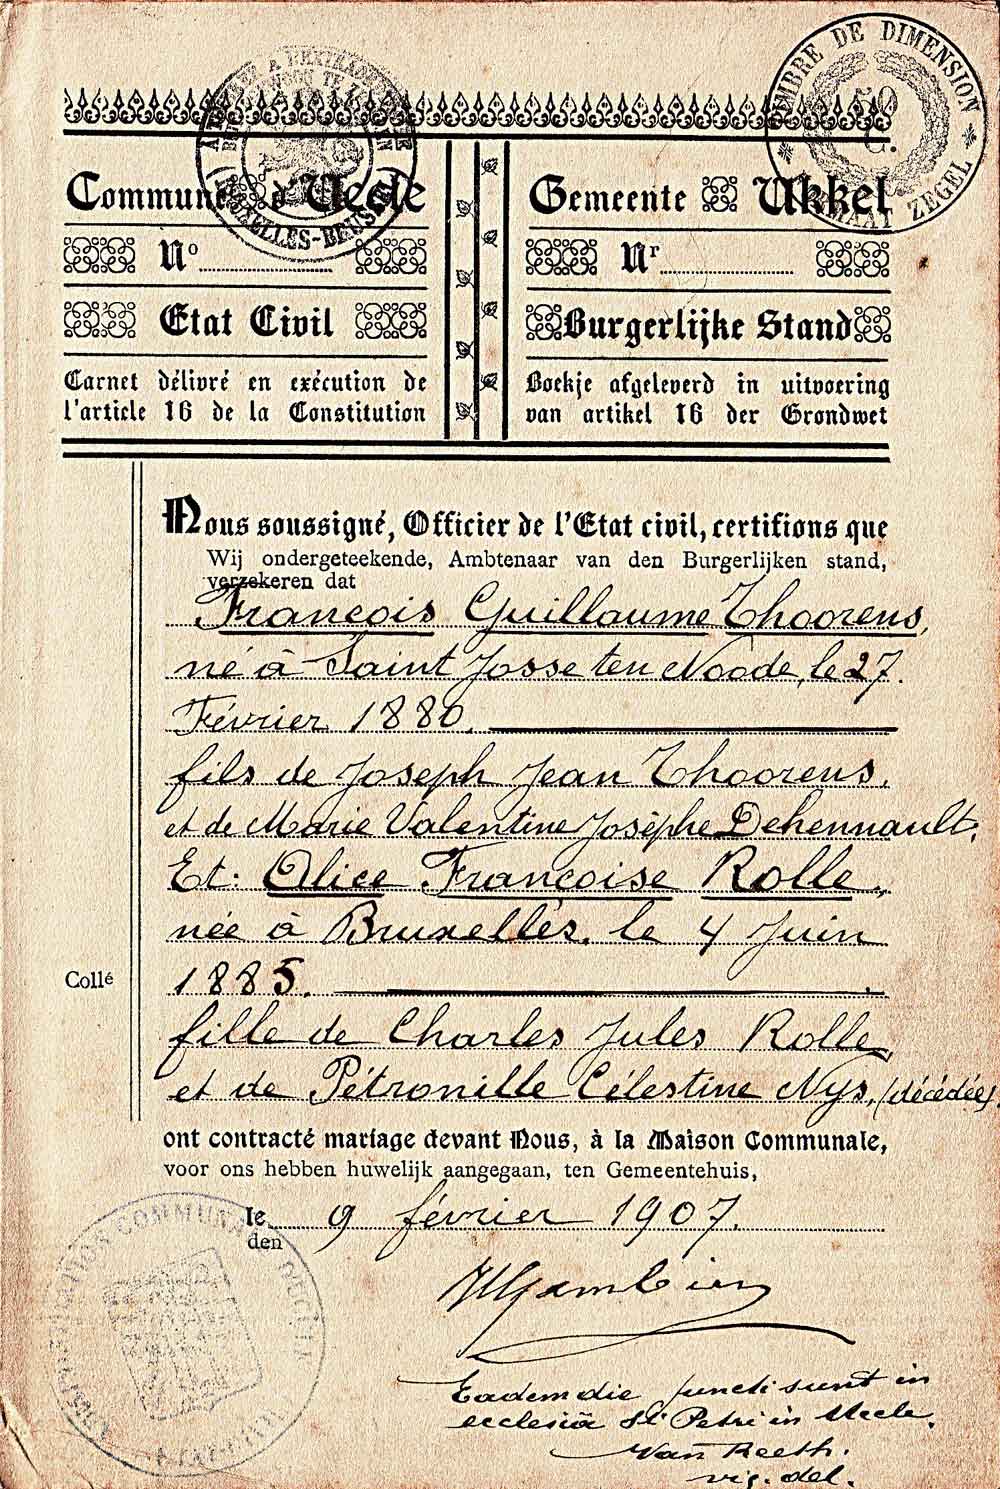 TIMBRE DE DIMENSION
50
C.
FORMAAT ZEGEL
BRUXELLES-BRUSSEL
Commune d'Uccle
Nº
Etat Civil
Carnet délivré en exécution de
l'article 16 de la Constitution
Gemeente Ukkel
Nr
Burgerlijke Stand
Boekje afgeleverd in uitvoering
van artikel 16 der Grondwet
Nous soussigné, Officier de l'Etat civil, certifions que
Wij ondergeteekende, Ambtenaar van den Burgerlijken stand,
verzekeren dat
François Guillaume Thoorens,
né à Saint Josse ten Noode, le 27.
Février 1880.
fils de Joseph Jean Thoorens,
et de Marie Valentine Josèphe Dehennault.
Et: Alice Françoise Rolle,
née à Bruxelles, le 4 Juin
Collé
1885.
fille de Charles Jules Rolle,
et de Pétronille Célestine Nys, (décédée).
ont contracté mariage devant Nous, à la Maison Communale,
voor ons hebben huwelijk aangegaan, ten Gemeentehuis,
le 9 février 1907.
den
ADMINISTRATION COMMUNALE D'UCCLE
Eadem die juncti sunt in
ecclesiâ Sti Petri in Uccle.
Van Reeth.
vic. del.